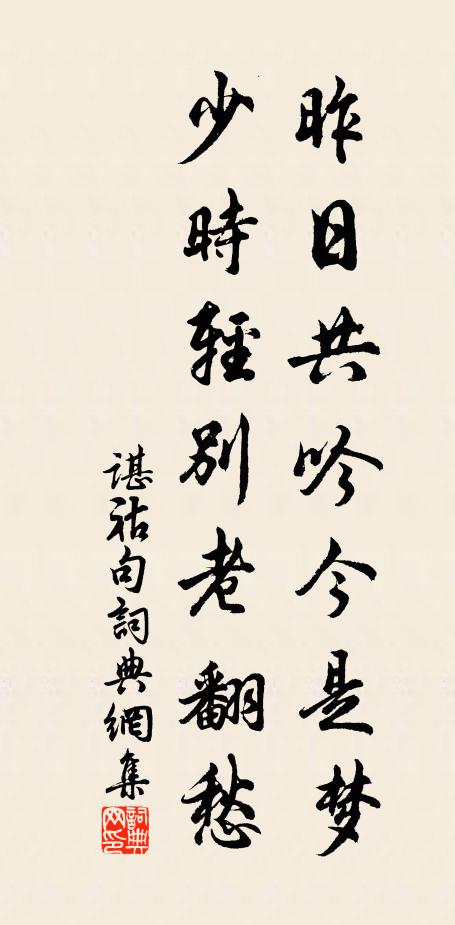 昨日共吟今是梦
少時輕別老翻愁
諶祜句詞典網集
詞典网印